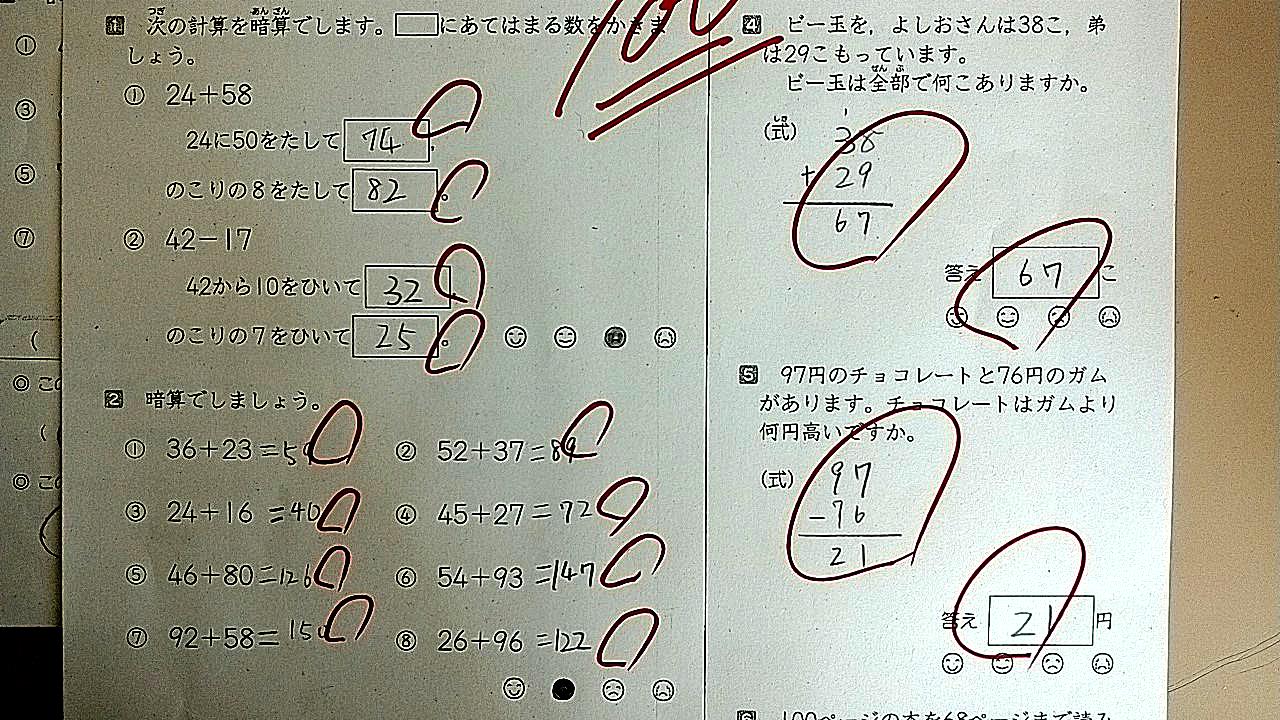 1 次の計算を暗算でします。□にあてはまる数をかきま
つぎ あんざん
しょう。
100
① 24+58
24に50をたして 74,
のこりの8をたして 82。
② 42-17
42から10をひいて 32
のこりの7をひいて 25。
2 暗算でしましょう。
① 36+23=59
② 52+37=89
③ 24+16=40
④ 45+27=72
⑤ 46+80=126
⑥ 54+93=147
⑦ 92+58=150
⑧ 26+96=122
4 ビー玉を,よしおさんは38こ,弟
は29こもっています。
ぜんぶ
ビー玉は全部で何こありますか。
しき
(式)
1
38
+29
67
答え 67 こ
5 97円のチョコレートと76円のガム
があります。チョコレートはガムより
何円高いですか。
(式)
97
-76
21
答え 21 円
100ページの本を68ページまで読み
①
③
⑤
⑦
(
◎ この
(
◎ この